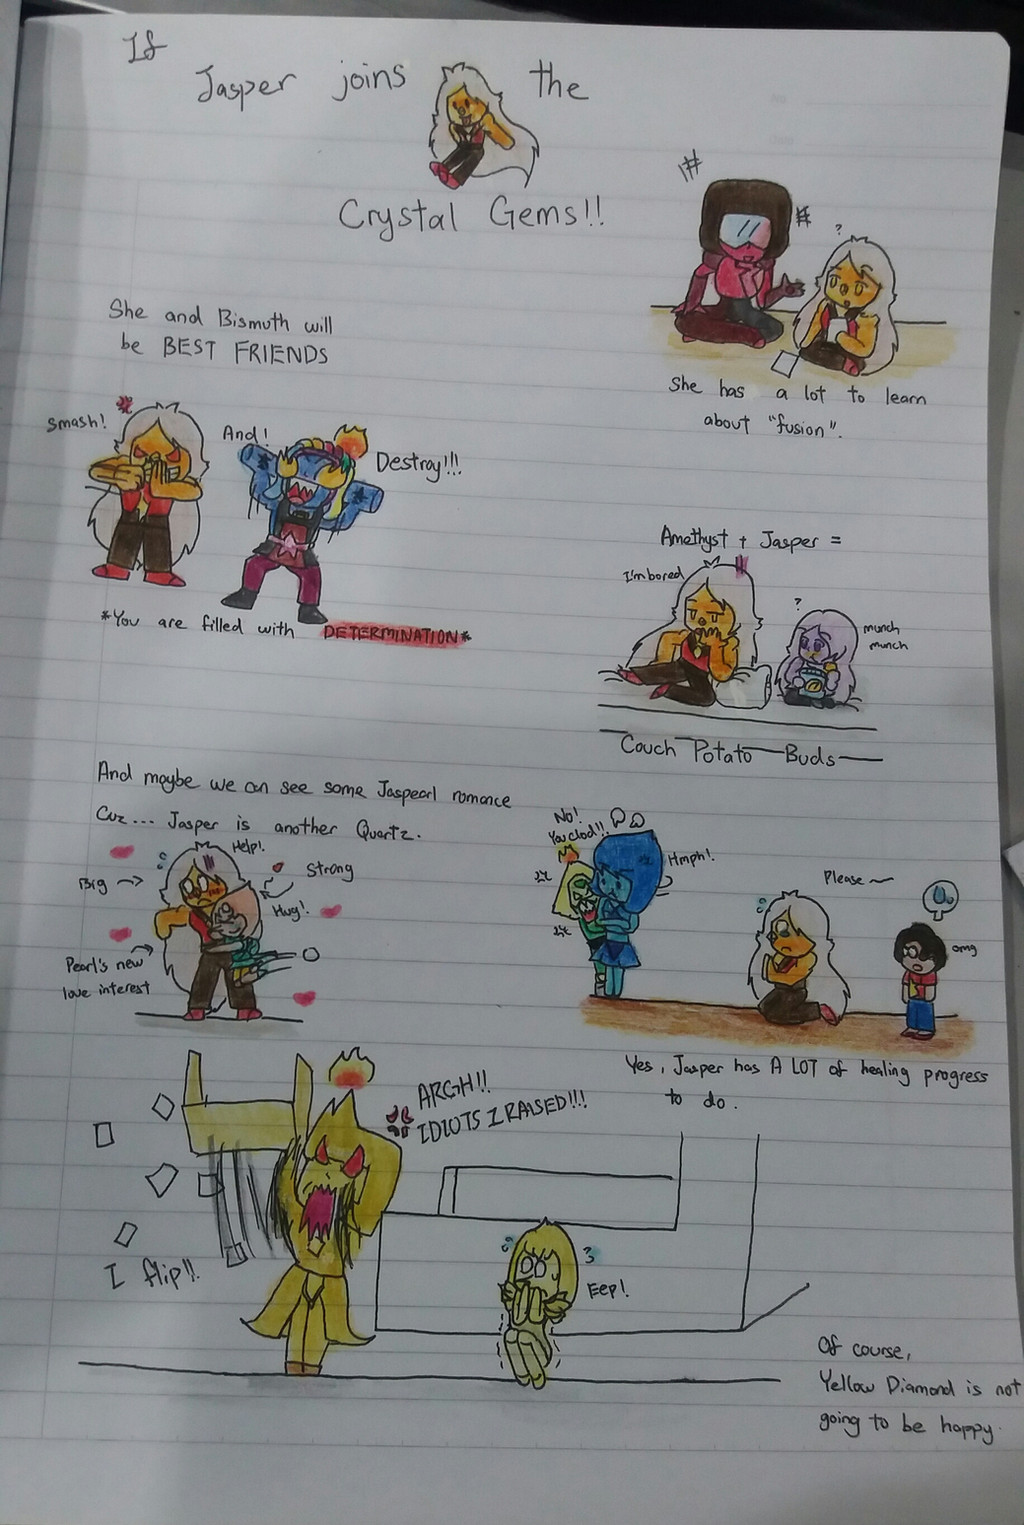 If
Jasper joins the
Crystal Gems!!
?
She has a lot to learn
about "fusion".
She and Bismuth will
be BEST FRIENDS
Smash!
And!
Destroy!!!
*You are filled with DETERMINATION*
Amethyst + Jasper =
I'm bored
?
munch
munch
Couch Potato Buds
And maybe we can see some Jaspearl romance
Cuz... Jasper is another Quartz.
Help!
Big
Strong
Hug!
Pearl's new
love interest
No!
You clod!!
Hmph!
Please
omg
Yes, Jasper has A LOT of healing progress
to do.
ARGH!!
IDIOTS I RAISED!!!
I flip!!
Eep!
Of course,
Yellow Diamond is not
going to be happy.